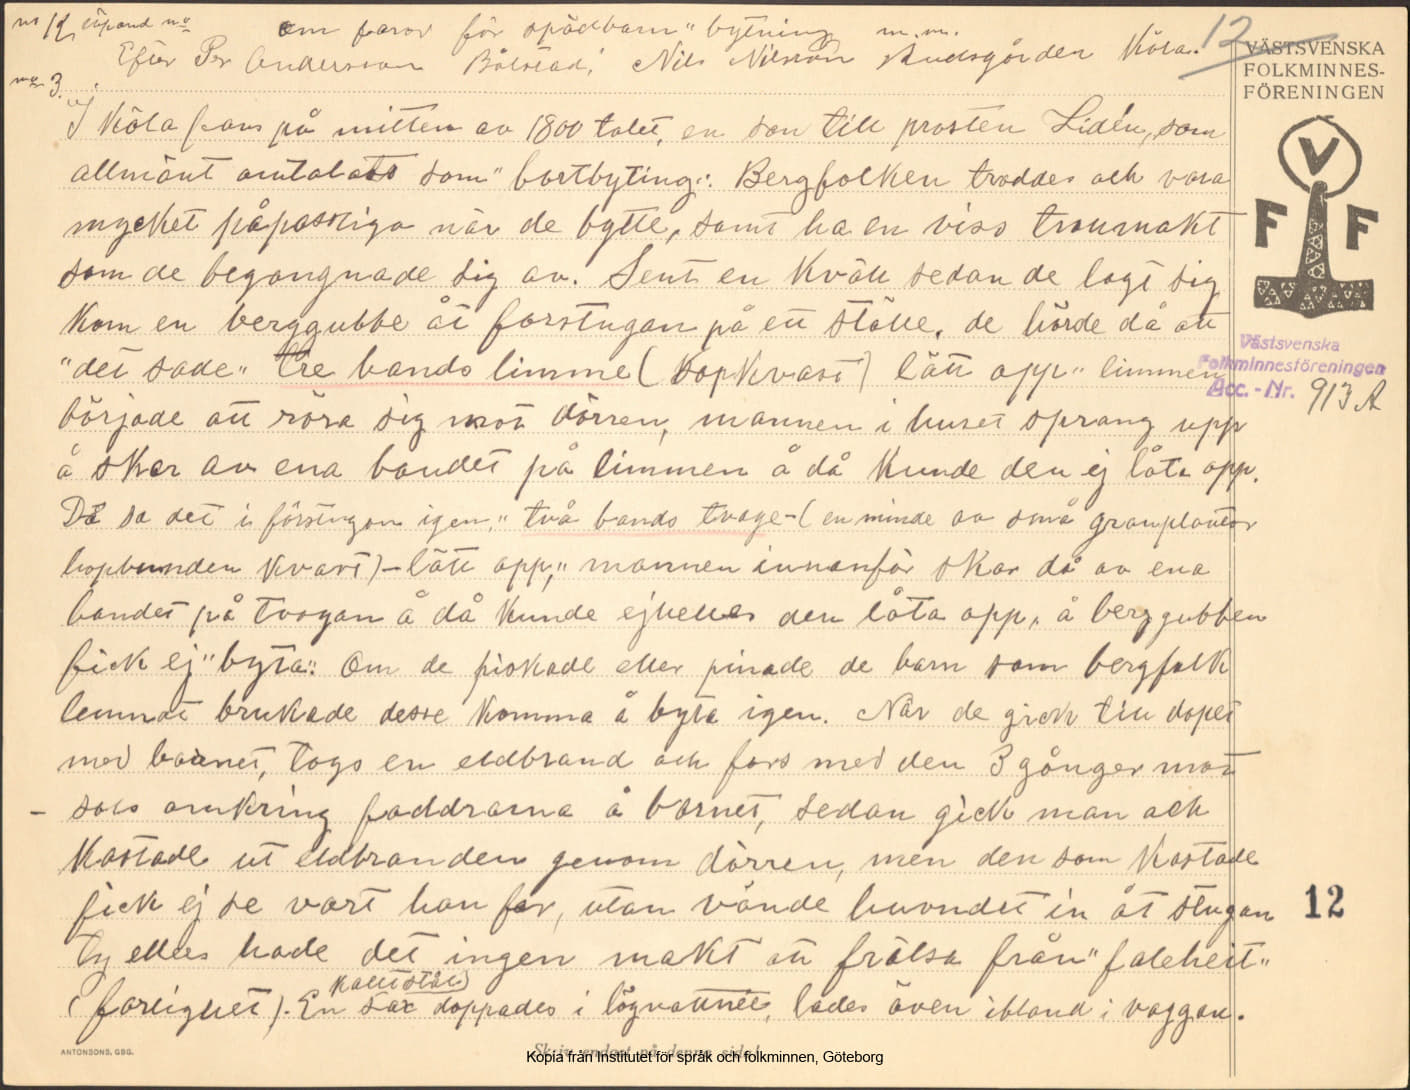 nr 12, Om faror för spädbarn "bytning m.m.
Efter Per Andersson Bålstad, Nils Nilsson Kudsgården Köla. 12
nr 3.
VÄSTSVENSKA
FOLKMINNES-
FÖRENINGEN
V
F F
I Köla fans på mitten av 1800 talet, en son till prosten Lidén, som
allmänt omtalats som "bortbyting". Bergfolken troddes och vara
mycket påpassliga när de bytte, samt ha en viss troumakt
som de begangnade sig av. Sent en kväll sedan de lagt sig
kom en berggubbe åt forstugan på ett ställe, de hörde då att
"det sade" tre bands limme (sopkvast) lått opp" limmen
började att röra sig mot dörren, mannen i huset sprang upp
å skar av ena bandet på limmen å då kunde den ej låta opp.
Då sa det i förstugan igen "två bands tvage - (en minde av små granplantor
hopbunden kvast) - lått opp," mannen innanför skar då av ena
bandet på tvogan å då kunde ejheller den låta opp, å berggubben
fick ej "byta". Om de piskade eller pinade de barn som bergfolk
lemnat brukade desse komma å byta igen. När de gick till dopet
med barnet, togs en eldbrand och fors med den 3 gånger mot
- sols omkring faddrarna å barnet, sedan gick man och
kastade ut eldbranden genom dörren, men den som kastade
fick ej se vart han for, utan vände huvudet in åt stugan
ty elles hade det ingen makt att frälsa från "faleheit"
(farlighet). En sax (kallt stål) doppades i lögvattnet, lades även ibland i vaggan.
Västsvenska
Folkminnesföreningen
Acc. - Nr. 913 A
12
ANTONSONS, GBG.
Skriv endast på denna sida!
Kopia från Institutet för språk och folkminnen, Göteborg